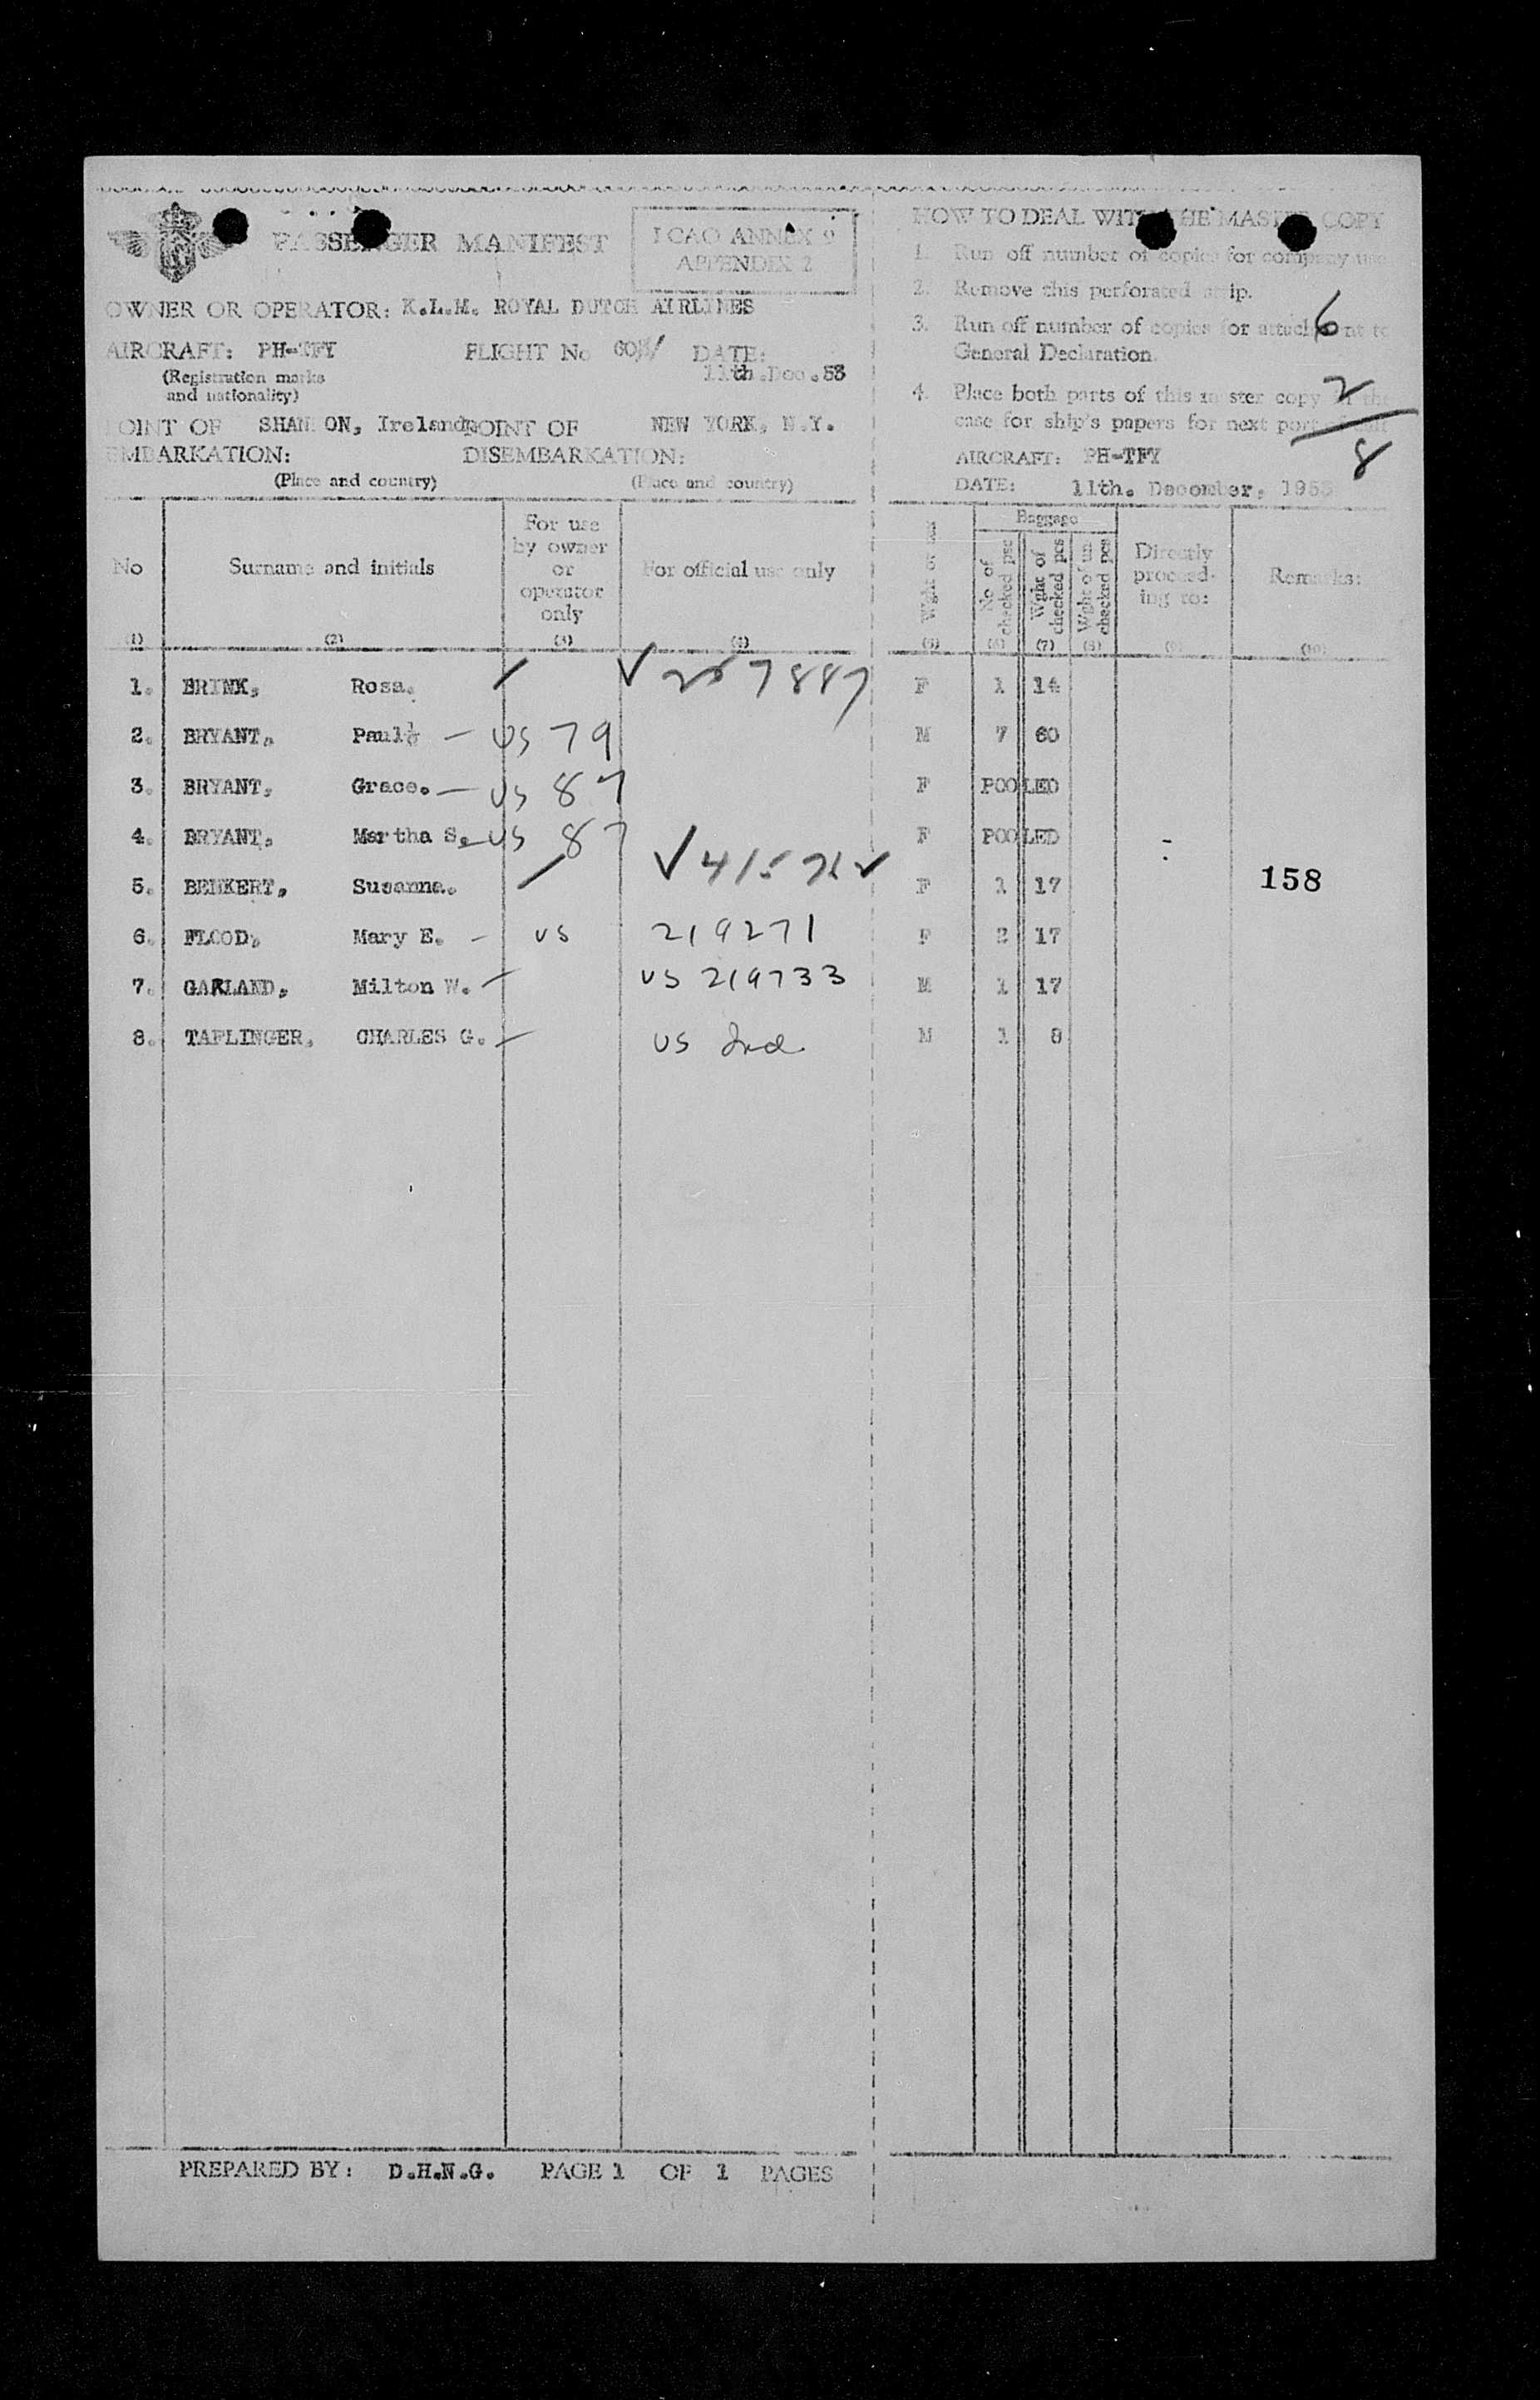 PASSENGER MANIFEST
ICAO ANNEX 9
APPENDIX 2
OWNER OR OPERATOR: K.L.M. ROYAL DUTCH AIRLINES
AIRCRAFT: PH-TFY FLIGHT No DATE:
(Registration marks
and nationality)
11th.Dec.53
POINT OF SHANNON, Ireland. POINT OF NEW YORK, N.Y.
EMBARKATION: DISEMBARKATION:
(Place and country) (Place and country)
HOW TO DEAL WITH THE MASTER COPY
1. Run off number of copies for company use
2. Remove this perforated strip.
3. Run off number of copies for attachment to
General Declaration.
4. Place both parts of this master copy in the
case for ship's papers for next port of call
6
2
8
AIRCRAFT: PH-TFY
DATE: 11th. December, 1953
No
(1)
Surname and initials
(2)
For use
by owner
or
operator
only
(3)
For official use only
(4)
(5)
Baggage
No of
checked pcs
(6)
Wght of
checked pcs
(7)
Wght of un
checked pcs
(8)
Directly
proceed-
ing to:
(9)
Remarks:
(10)
1. BRINK, Rosa. F 1 14
2. BRYANT, Paul - US 79 M 7 60
3. BRYANT, Grace. - US 87 F POOLED
4. BRYANT, Martha S. - US 87 F POOLED
5. Susanna. F 1 17
158
6. FLOOD, Mary E. - US 219271 F 2 17
7. GARLAND, Milton W. - US 219733 M 1 17
8. TAPLINGER, CHARLES G. - US M 1 8
PREPARED BY: D.H.N.G. PAGE 1 OF 1 PAGES